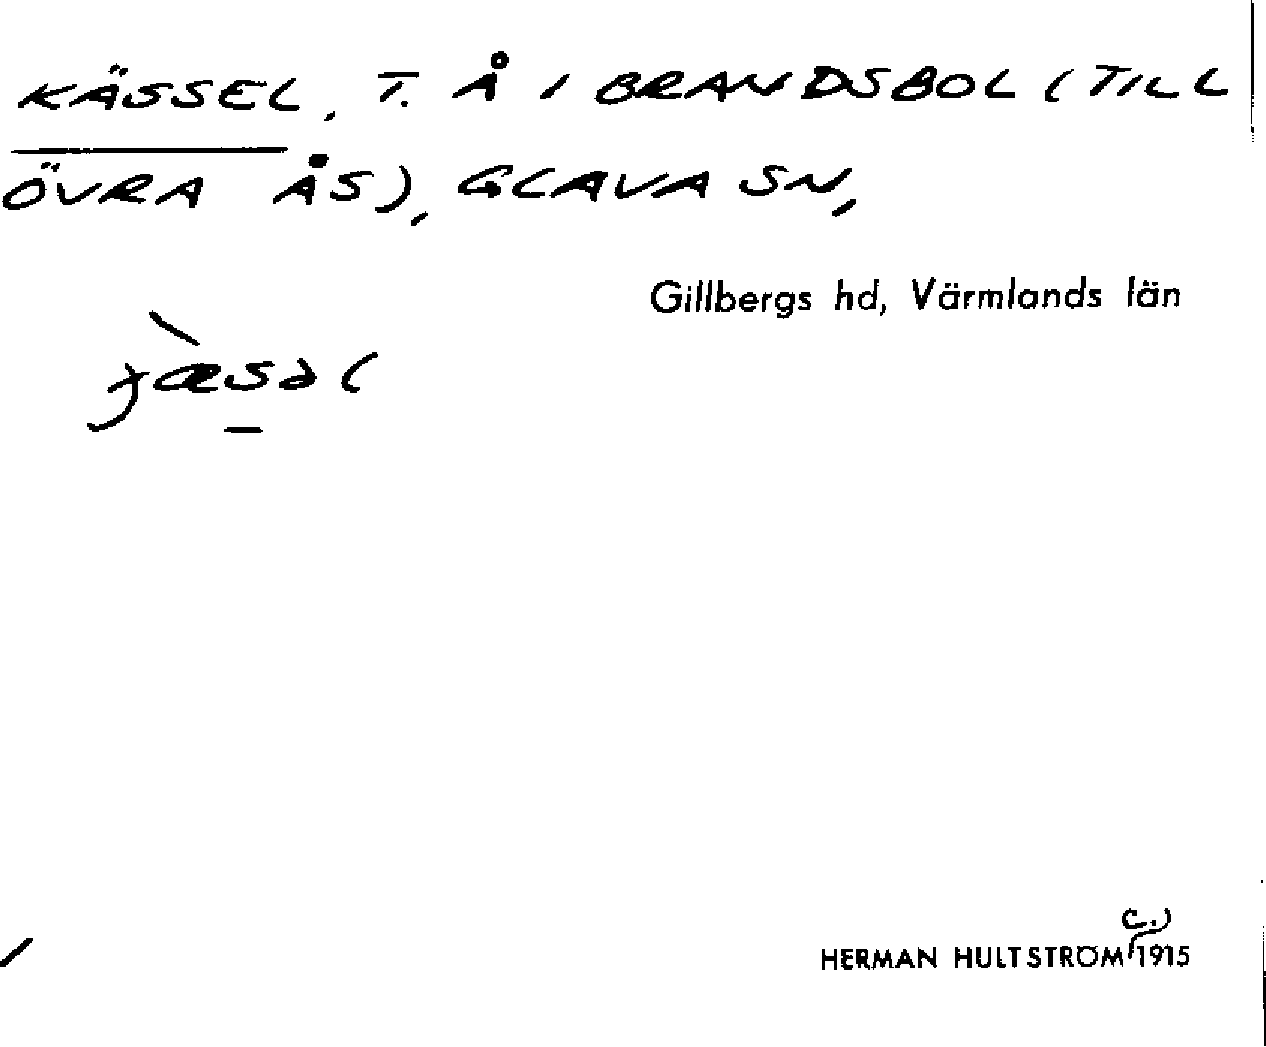 KÄSSEL, T. Å I BRANDSBOL (TILL
ÖVRA ÅS), GLAVA SN,
Gillbergs hd, Värmlands län
C.)
HERMAN HULTSTRÖM 1915